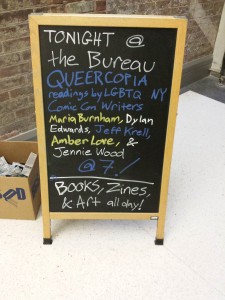 TONIGHT @
the Bureau
QUEERCOPIA
readings by LGBTQ NY
Comic Con Writers
Maria Burnham, Dylan
Edwards, Jeff Krell,
Amber Love, &
Jennie Wood
@ 7!
Books, Zines,
& Art all day!